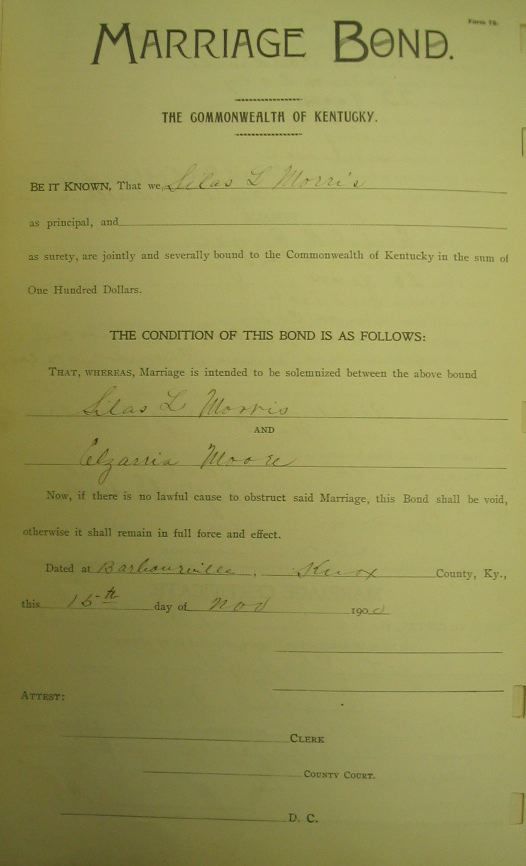 Form 78.
MARRIAGE BOND.
THE COMMONWEALTH OF KENTUCKY.
BE IT KNOWN, That we, Silas L Morris
as principal, and
as surety, are jointly and severally bound to the Commonwealth of Kentucky in the sum of
One Hundred Dollars.
THE CONDITION OF THIS BOND IS AS FOLLOWS:
THAT, WHEREAS, Marriage is intended to be solemnized between the above bound
Silas L Morris
AND
Elzarria Moore
Now, if there is no lawful cause to obstruct said Marriage, this Bond shall be void,
otherwise it shall remain in full force and effect.
Dated at Barbourville, Knox County, Ky.,
this 15th day of Nov 190
ATTEST:
CLERK
COUNTY COURT.
D. C.